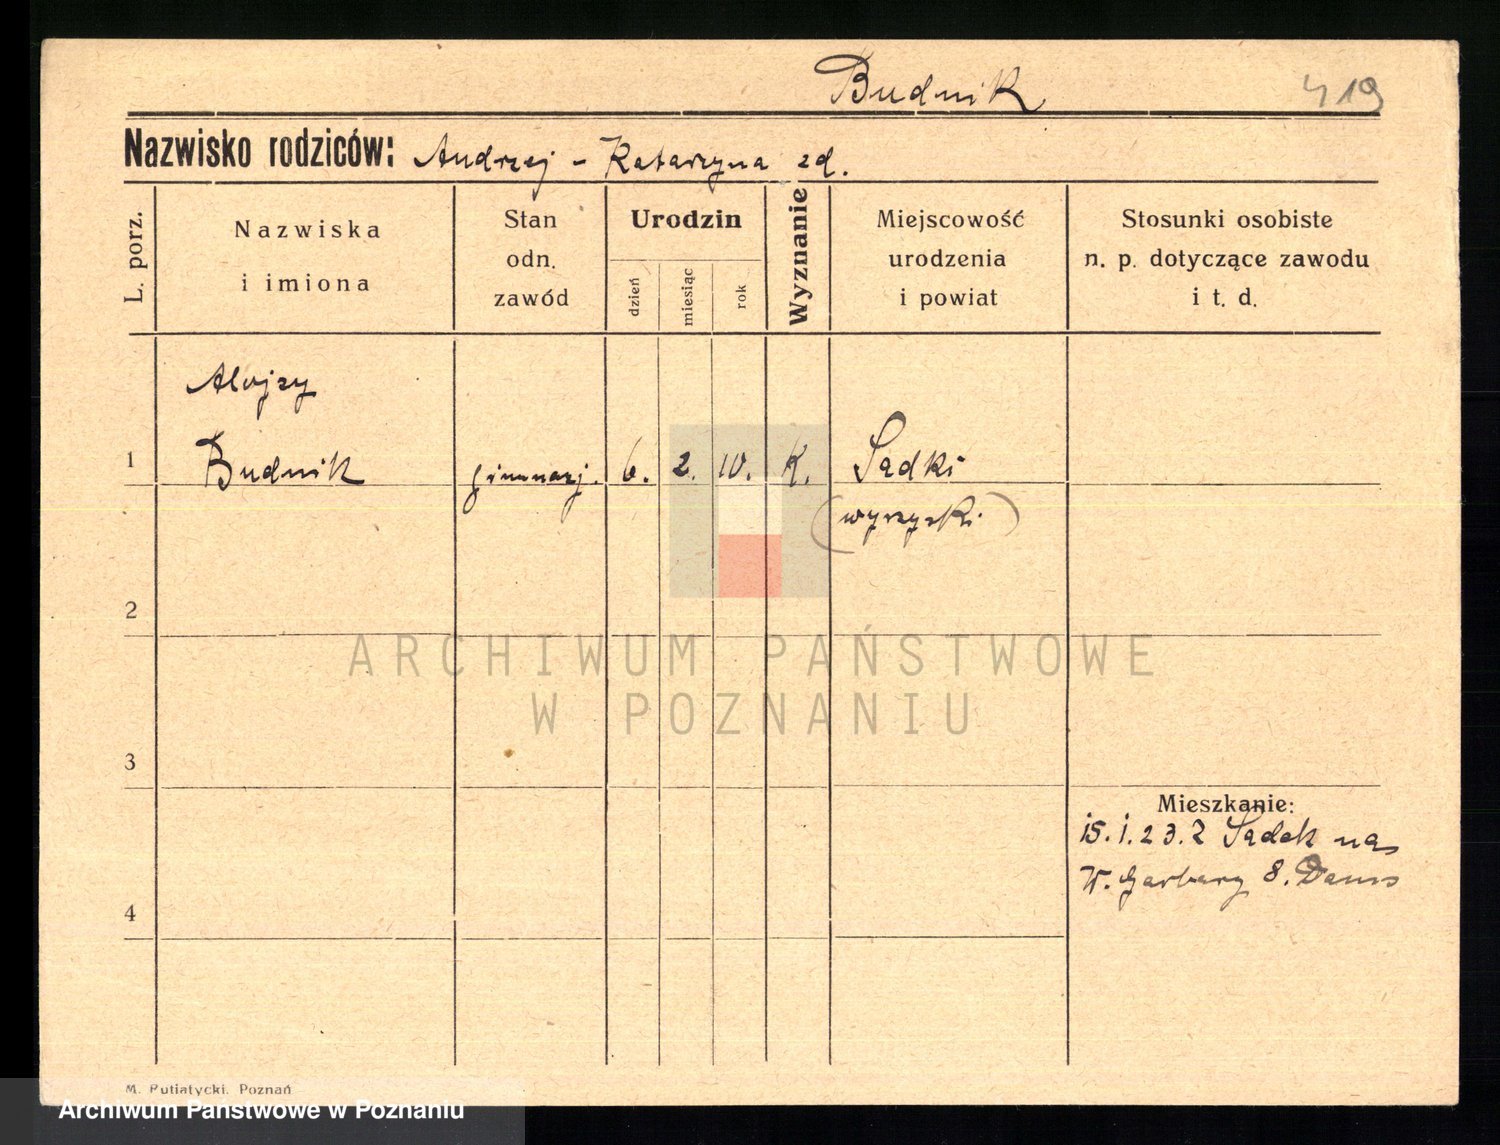 Budnik 419
Nazwisko rodziców: Andrzej - Katarzyna zd.
L. porz.
Nazwiska
i imiona
Stan
odn.
zawód
Urodzin
dzień
miesiąc
rok
Wyznanie
Miejscowość
urodzenia
i powiat
Stosunki osobiste
n. p. dotyczące zawodu
i t. d.
Alojzy
1 Budnik gimnazj. 6. 2. 10. K. Sadki
(wyrzyski)
2
ARCHIWUM PAŃSTWOWE
W POZNANIU
3
Mieszkanie:
15.1.23. Z Sadek na
W. Garbary 8.
4
M. Putiatycki. Poznań
Archiwum Państwowe w Poznaniu